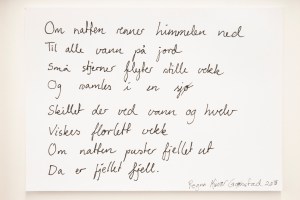 Om natten renner himmelen ned
Til alle vann på jord
Små stjerner flyter stille vekk
Og samles i en sjø
Skillet der ved vann og hvelv
Viskes florlett vekk
Om natten puster fjellet ut
Da er fjellet fjell.